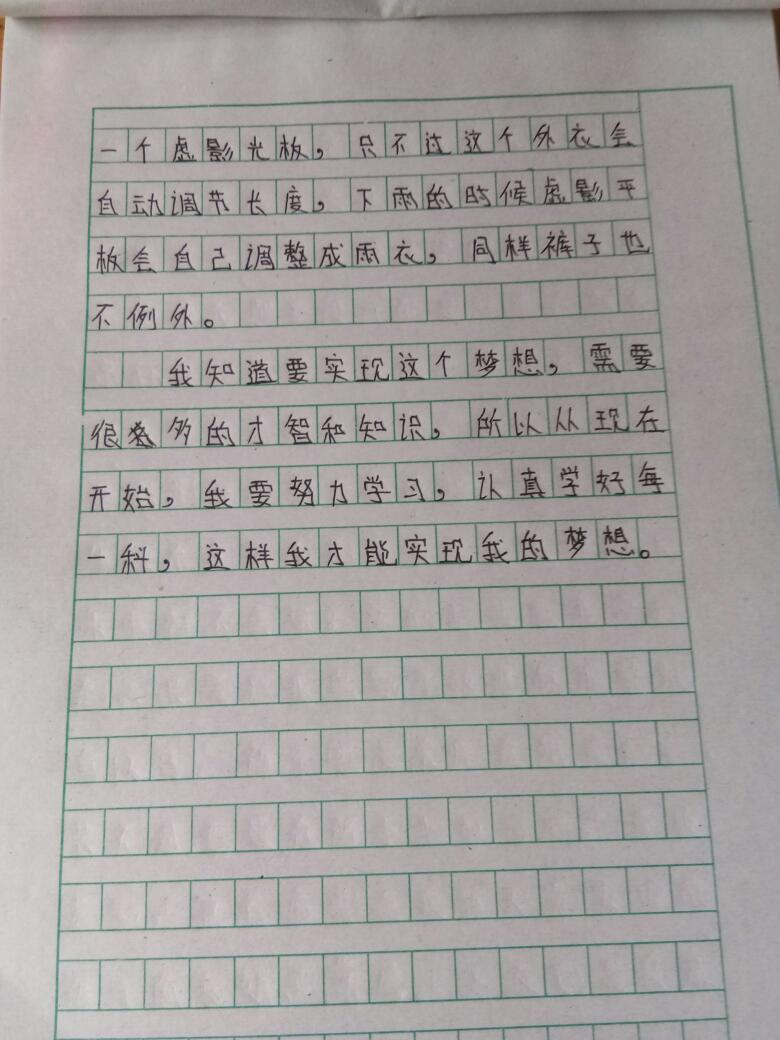 一个虚影光板，只不过这个外衣会
自动调节长度，下雨的时候虚影平
板会自己调整成雨衣，同样裤子也
不例外。
我知道要实现这个梦想，需要
很多的才智和知识，所以从现在
开始，我要努力学习，认真学好每
一科，这样我才能实现我的梦想。